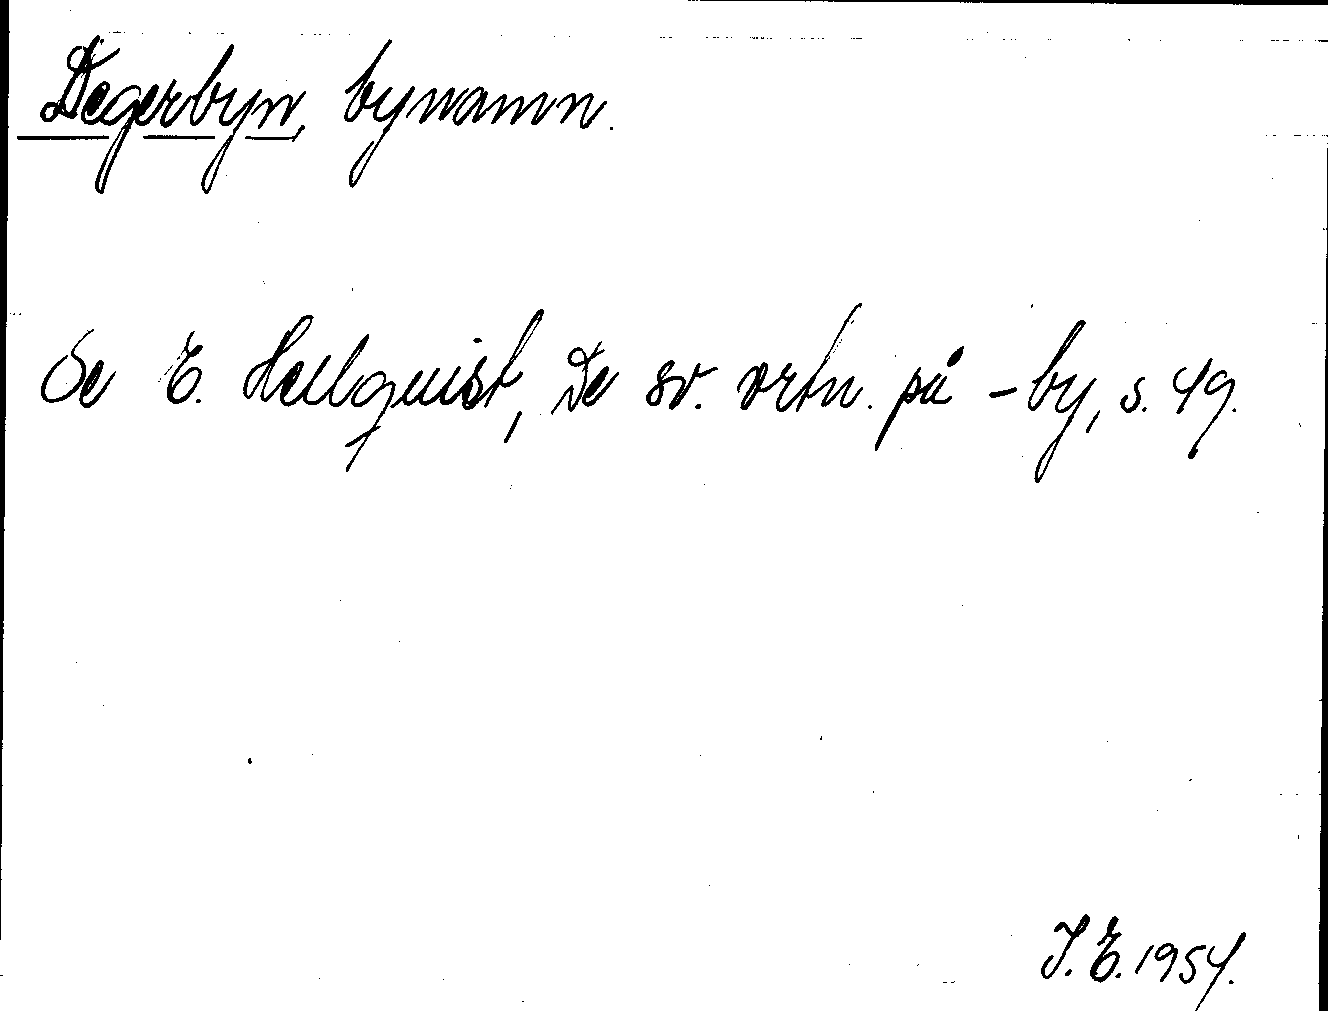 Degerbyn, bynamn.
Se E. Hellquist, De sv. ortn. på -by, s. 49.
J. E. 1954.